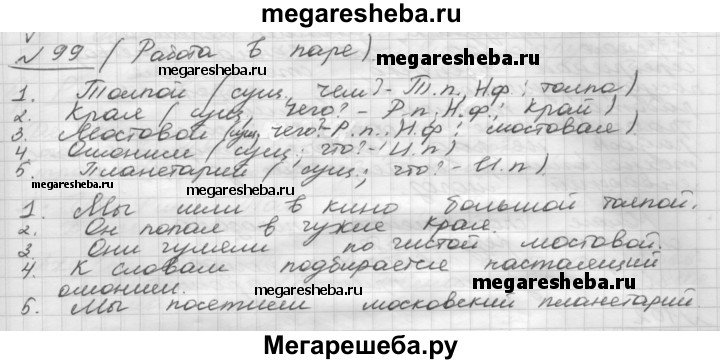 megaresheba.ru
№ 99 (Работа в паре)
megaresheba.ru
megaresheba.ru
1. Толпой (сущ., чем? - Т.п., Н.ф.; толпа)
2. Края (сущ., чего? - Р.п., Н.ф.; край)
megaresheba.ru
3. Мостовой (сущ., чего? - Р.п., Н.ф.; мостовая)
4. Омоним (сущ.; что? - И.п)
5. Планетарий (сущ.; что? - И.п)
megaresheba.ru
megaresheba.ru
1. Мы шли в кино большой толпой.
2. Он попал в чужие края.
3. Они гуляли по чистой мостовой.
4. К словам подбирается настоящий
омоним.
megaresheba.ru
megaresheba.ru
5. Мы посетили московский планетарий
Мегарешеба.ру